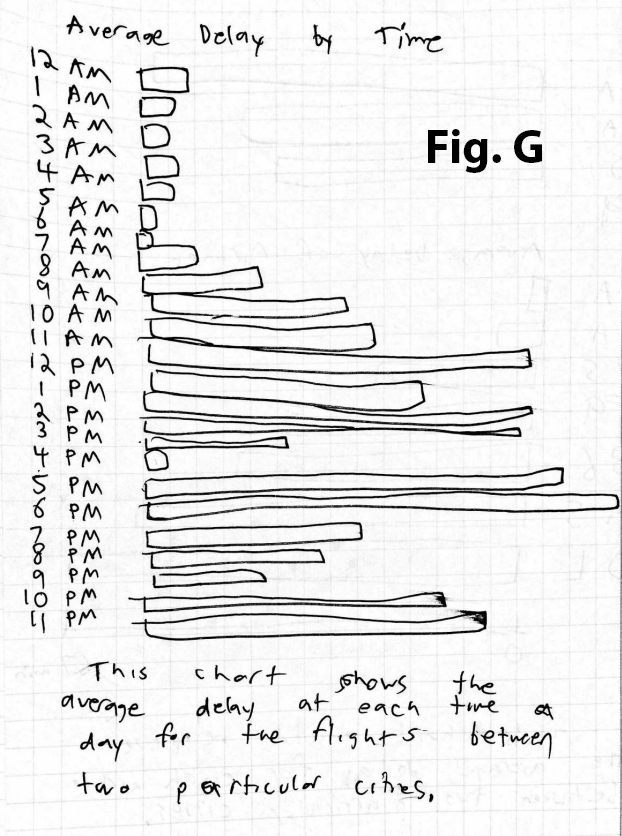 Average Delay by Time
12 AM
1 AM
2 AM
3 AM
4 AM
5 AM
6 AM
7 AM
8 AM
9 AM
10 AM
11 AM
12 PM
1 PM
2 PM
3 PM
4 PM
5 PM
6 PM
7 PM
8 PM
9 PM
10 PM
11 PM
Fig. G
This chart shows the
average delay at each time
day for the flights between
two particular cities.